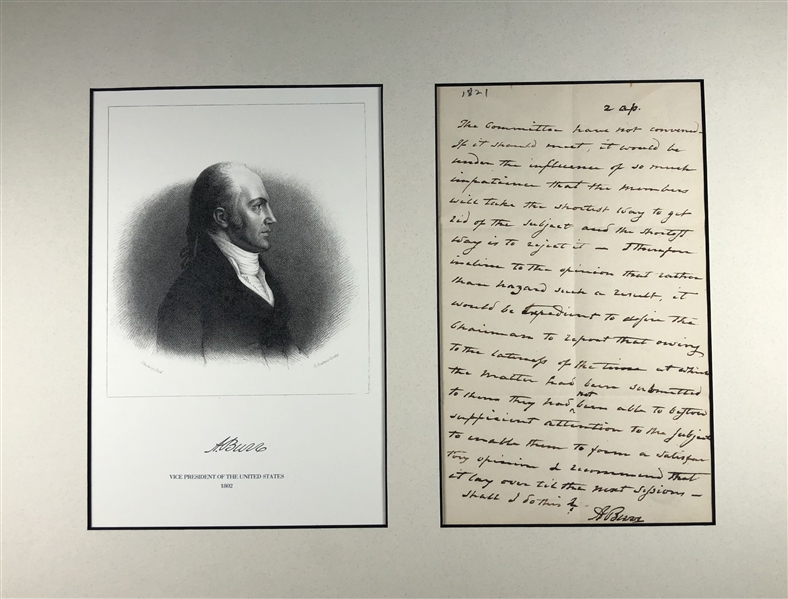 A Burr
VICE PRESIDENT OF THE UNITED STATES
1802
1821
2 ap.
The Committee have not convened.
If it should meet, it would be
under the influence of so much
impatience that the members
will take the shortest way to get
rid of the subject and the shortest
way is to reject it — I therefore
incline to the opinion that rather
than hazard such a result, it
would be expedient to desire the
Chairman to report that owing
to the lateness of the time at which
the matter had been submitted
to them they had not been able to bestow
sufficient attention to the subject
to enable them to form a satisfac
tory opinion & recommend that
it lay over til the next sessions —
Shall I do this?
A Burr